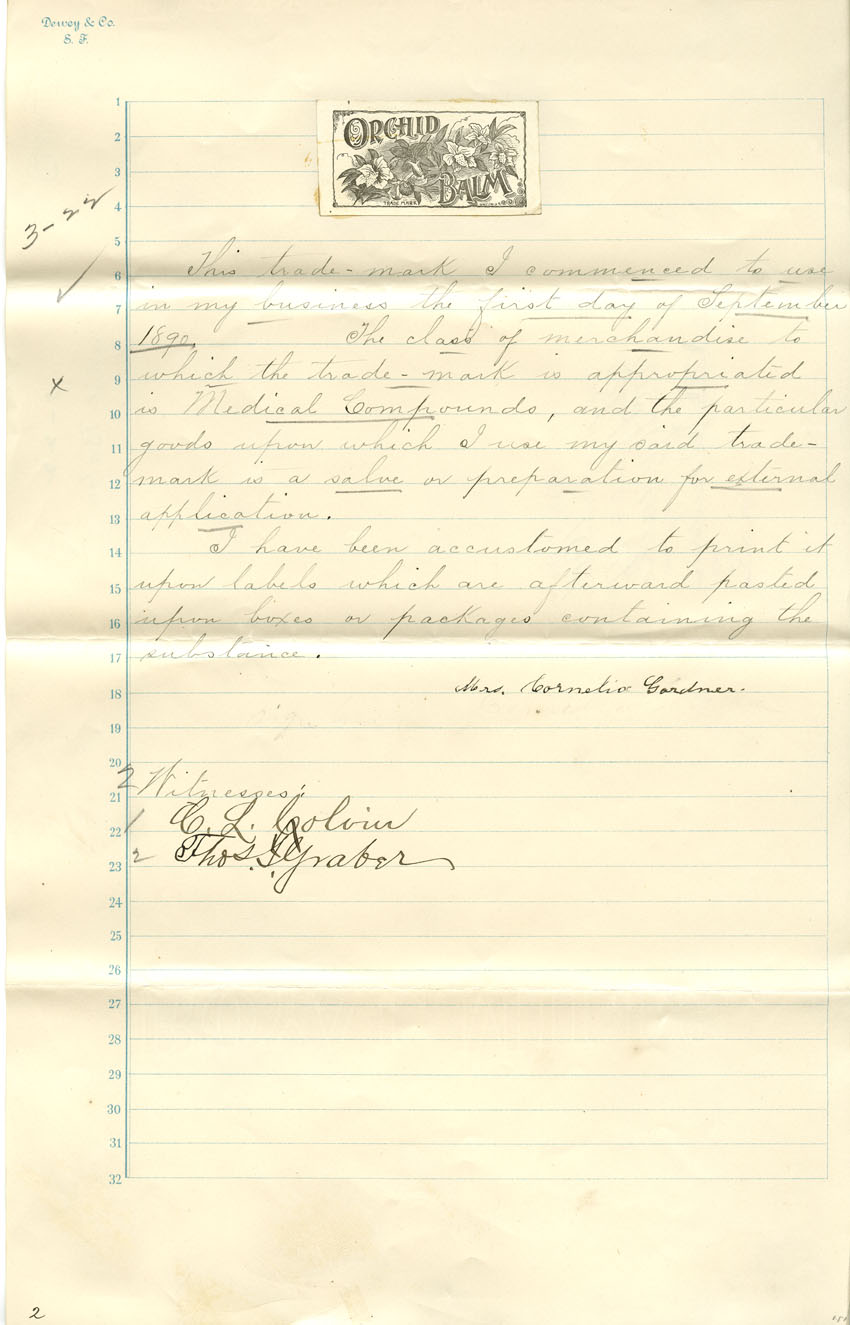 Dewey & Co.
S. F.
ORCHID
BALM
TRADE MARK
3-22
1
2
3
4
5
6 This trade-mark I commenced to use
7 in my business the first day of September
8 1890. The class of merchandise to
9 which the trade-mark is appropriated
10 is Medical Compounds, and the particular
11 goods upon which I use my said trade-
12 mark is a salve or preparation for external
13 application.
14 I have been accustomed to print it
15 upon labels which are afterward pasted
16 upon boxes or packages containing the
17 substance.
18 Mrs. Cornelia Gardner.
19
20
21 2 Witnesses;
22 1 C. L. Colvin
23 2 Thos. J. Graber
24
25
26
27
28
29
30
31
32
2